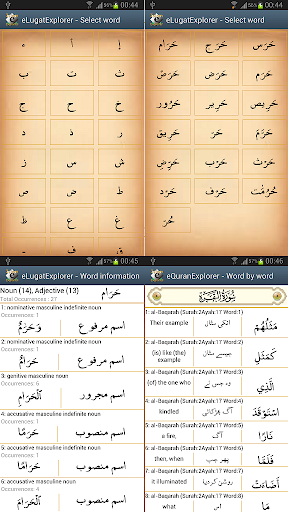 00:44
eLugatExplorer - Select word
ث ت ب
خ ح ج
ر ذ د
ش س ز
ط ض ص
00:44
eLugatExplorer - Select word
حَرَس حَرَج حَرَام
حَرِير
حَرِيص حَرَض حَرُور
حَرِيق
حَرْث
حُرُمَٰت
حُرّ
00:45
eLugatExplorer - Word information
Noun (14), Adjective (13)
حَرَام
Total Occurrences : 27
1: nominative masculine indefinite noun
Occurrences: 1
اسم مرفوع
2: nominative masculine indefinite noun
Occurrences: 1
حَرَامٌ
اسم مرفوع
3: genitive masculine noun
Occurrences: 6
ٱلْحَرَامِ
اسم مجرور
4: accusative masculine indefinite noun
Occurrences: 1
حَرَمًا
اسم منصوب
5: accusative masculine indefinite noun
Occurrences: 1
حَرَامًا
اسم منصوب
6: accusative masculine noun
Occurrences: 4
ٱلْحَرَامَ
اسم منصوب
00:46
eQuranExplorer - Word by word
سُورَةُ البَقَرَة
1: al-Baqarah (Surah:2Ayah:17 Word:1)
Their example
انکی مثال
مَثَلُهُمْ
2: al-Baqarah (Surah:2Ayah:17 Word:2)
(is) like (the) example
جیسے مثال
كَمَثَلِ
3: al-Baqarah (Surah:2Ayah:17 Word:3)
(of) the one who
وہ جس نے
ٱلَّذِي
4: al-Baqarah (Surah:2Ayah:17 Word:4)
kindled
آگ بھڑکائی
ٱسْتَوْقَدَ
5: al-Baqarah (Surah:2Ayah:17 Word:5)
a fire,
آگ
نَارًا
6: al-Baqarah (Surah:2Ayah:17 Word:6)
then, when
پھر جب
فَلَمَّا
7: al-Baqarah (Surah:2Ayah:17 Word:7)
it illuminated
روشن کردیا
أَضَاءَتْ
8: al-Baqarah (Surah:2Ayah:17 Word:8)